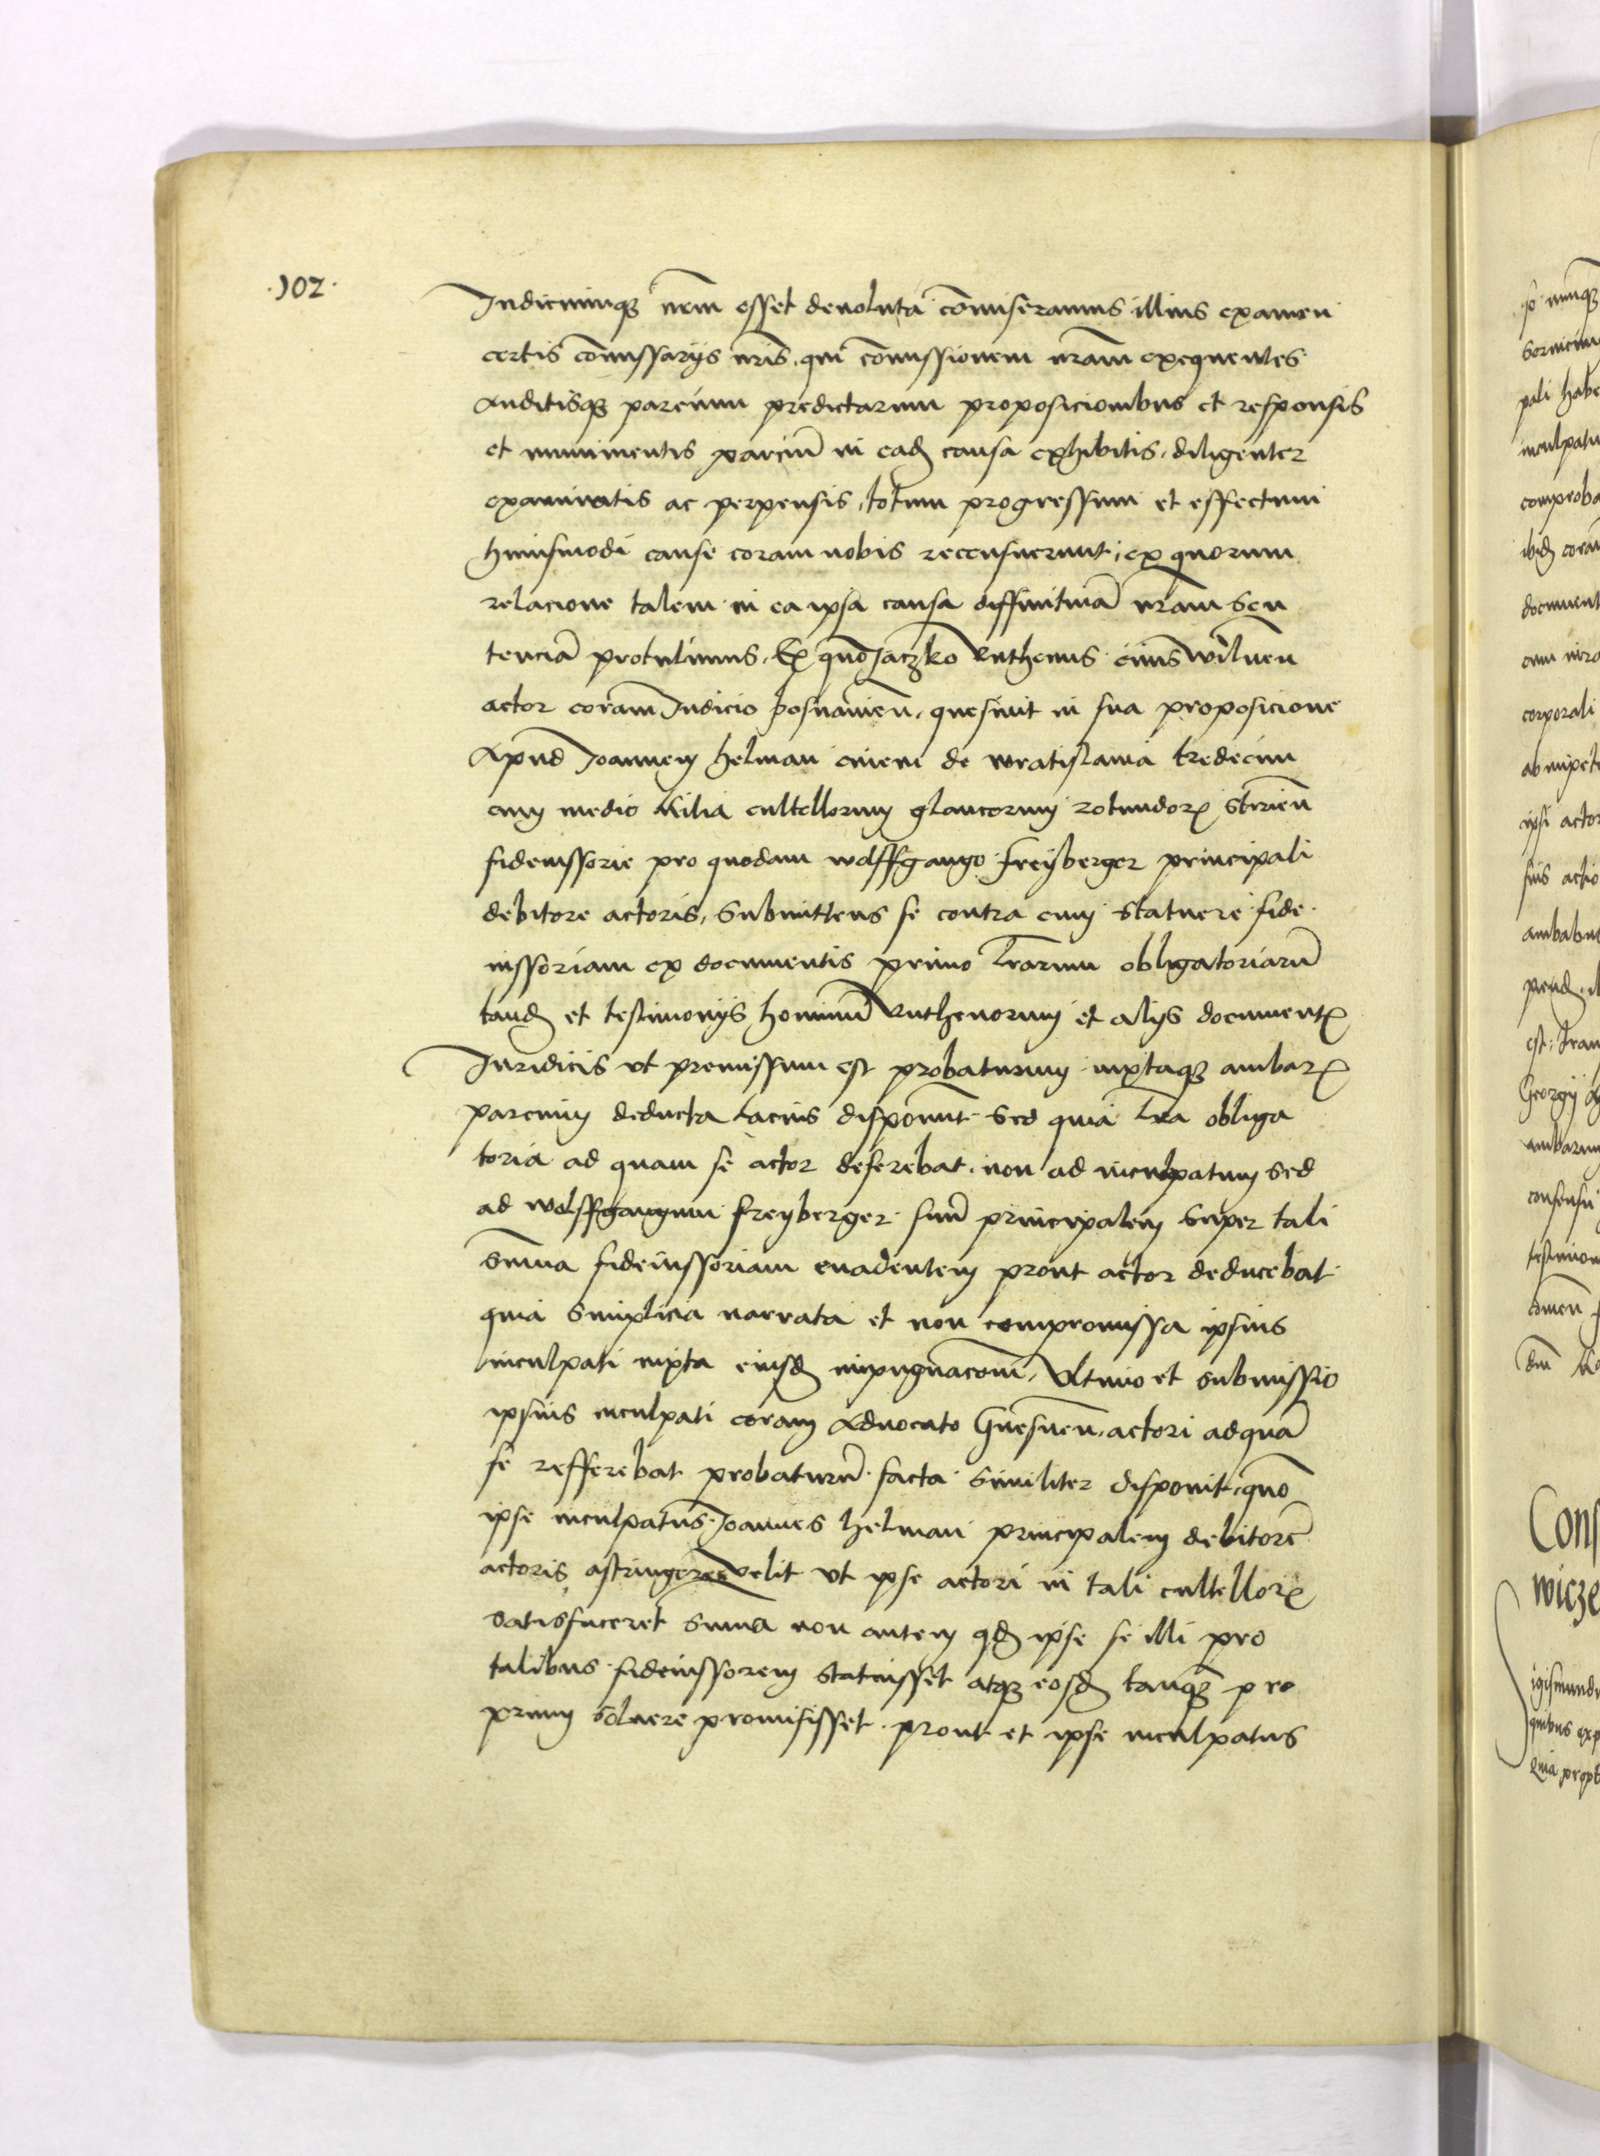 .102.
Indiciumqȝ nr̄m esset deuoluta com̄iseramus illius examen
certis com̄issarijs nr̄is, qui com̄issionem nr̄am exequentes
Auditisqȝ parcium predictarum proposicionibus et responsis
et munimentis parciū in eadȩ causa exhibitis, diligenter
examinatis ac perpensis, totum progressum et effectum
huiusmodi cause coram nobis recensuerunt, ex quorum
relacione talem in ea ipsa causa diffinitiuā nr̄am sen
tenciā protulimus. Ex quo Jaczko Ruthenus ciuis wilnen̄
actor coram Judicio posnanien̄, quesiuit in sua proposicione
Apud Joannem helman ciuem de wratislauia tredecim
cum medio milia cultellorum glaucorum rotundorꝝ Strien̄
fideiussorie pro quodam wolffgango Freyberger principali
debitore actoris, Submittens se contra eum statuere fide
iussoriam ex documentis primo lr̄arum obligatoriarū
tandȩ et testimonijs hominū Ruthenorum et alijs documentꝭ
Juridicis vt premissum est probaturum iuxtaqȝ ambarꝝ
parcium deducta lacius disponunt Sed quia lr̄a obliga
toria ad quam se actor deferebat, non ad inculpatum sed
ad wolffgangum freyberger suū principalem super tali
Sum̄a fideiussoriam euadentem prout actor deducebat
quia Simplicia narrata et non compromissa ipsius
inculpati iuxta eiusdȩ impugnacom̄, Vltimo et submissio
ipsius inculpati coram Aduocato Gnesnen̄, actori adquā
se refferebat probaturū facta similiter disponit, quo
ipse inculpatus Joannes helman principalem debitorē
actoris astringere velit vt ipse actori in tali cultellorꝝ
satisfaceret Sum̄a non autem qdȩ ipse se illi pro
talibus fideiussorem statuisset atqȝ eosdȩ tanqȝ pro
prium soluere promisisset prout et ipse inculpatus